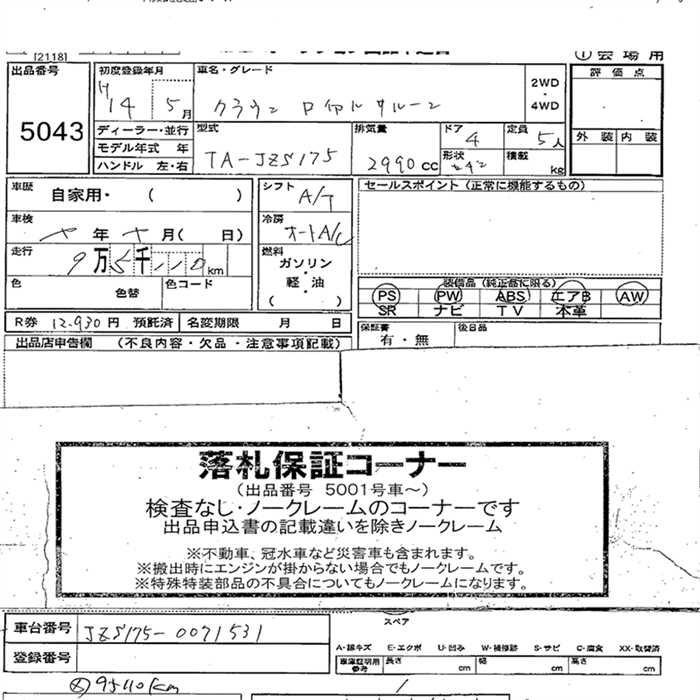 [2118]
① 会場用
出品番号
5043
初度登録年月
H14 5月
車名・グレード
クラウン ロイヤルサルーン
2WD
・
4WD
評価点
外装 内装
ディーラー・並行
モデル年式 年
ハンドル 左・右
型式
TA-JZS175
排気量
2990 CC
ドア
4
形状
定員
5人
積載
kg
車歴
自家用・ ( )
車検
年 月( 日)
走行
9万5千110km
色
色替
色コード
シフト
A/T
冷房
オートA/C
燃料
ガソリン
・
軽・油
( )
セールスポイント (正常に機能するもの)
装備品 (純正品に限る)
PS PW ABS エアB AW
SR ナビ TV 本革
R券 12,930円 預託済
名変期限 月 日
保証書
有・無
後日品
出品店申告欄 (不良内容・欠品・注意事項記載)
落札保証コーナー
(出品番号 5001号車～)
検査なし・ノークレームのコーナーです
出品申込書の記載違いを除きノークレーム
※不動車、冠水車など災害車も含まれます。
※搬出時にエンジンが掛からない場合でもノークレームです。
※特殊特装部品の不具合についてもノークレームになります。
車台番号
JZS175-0071531
登録番号
スペア
A-線キズ E-エクボ U-凹み W-補修跡 S-サビ C-腐食 XX-取替済
車庫証明用参考
長さ cm
幅 cm
高さ cm
95110km